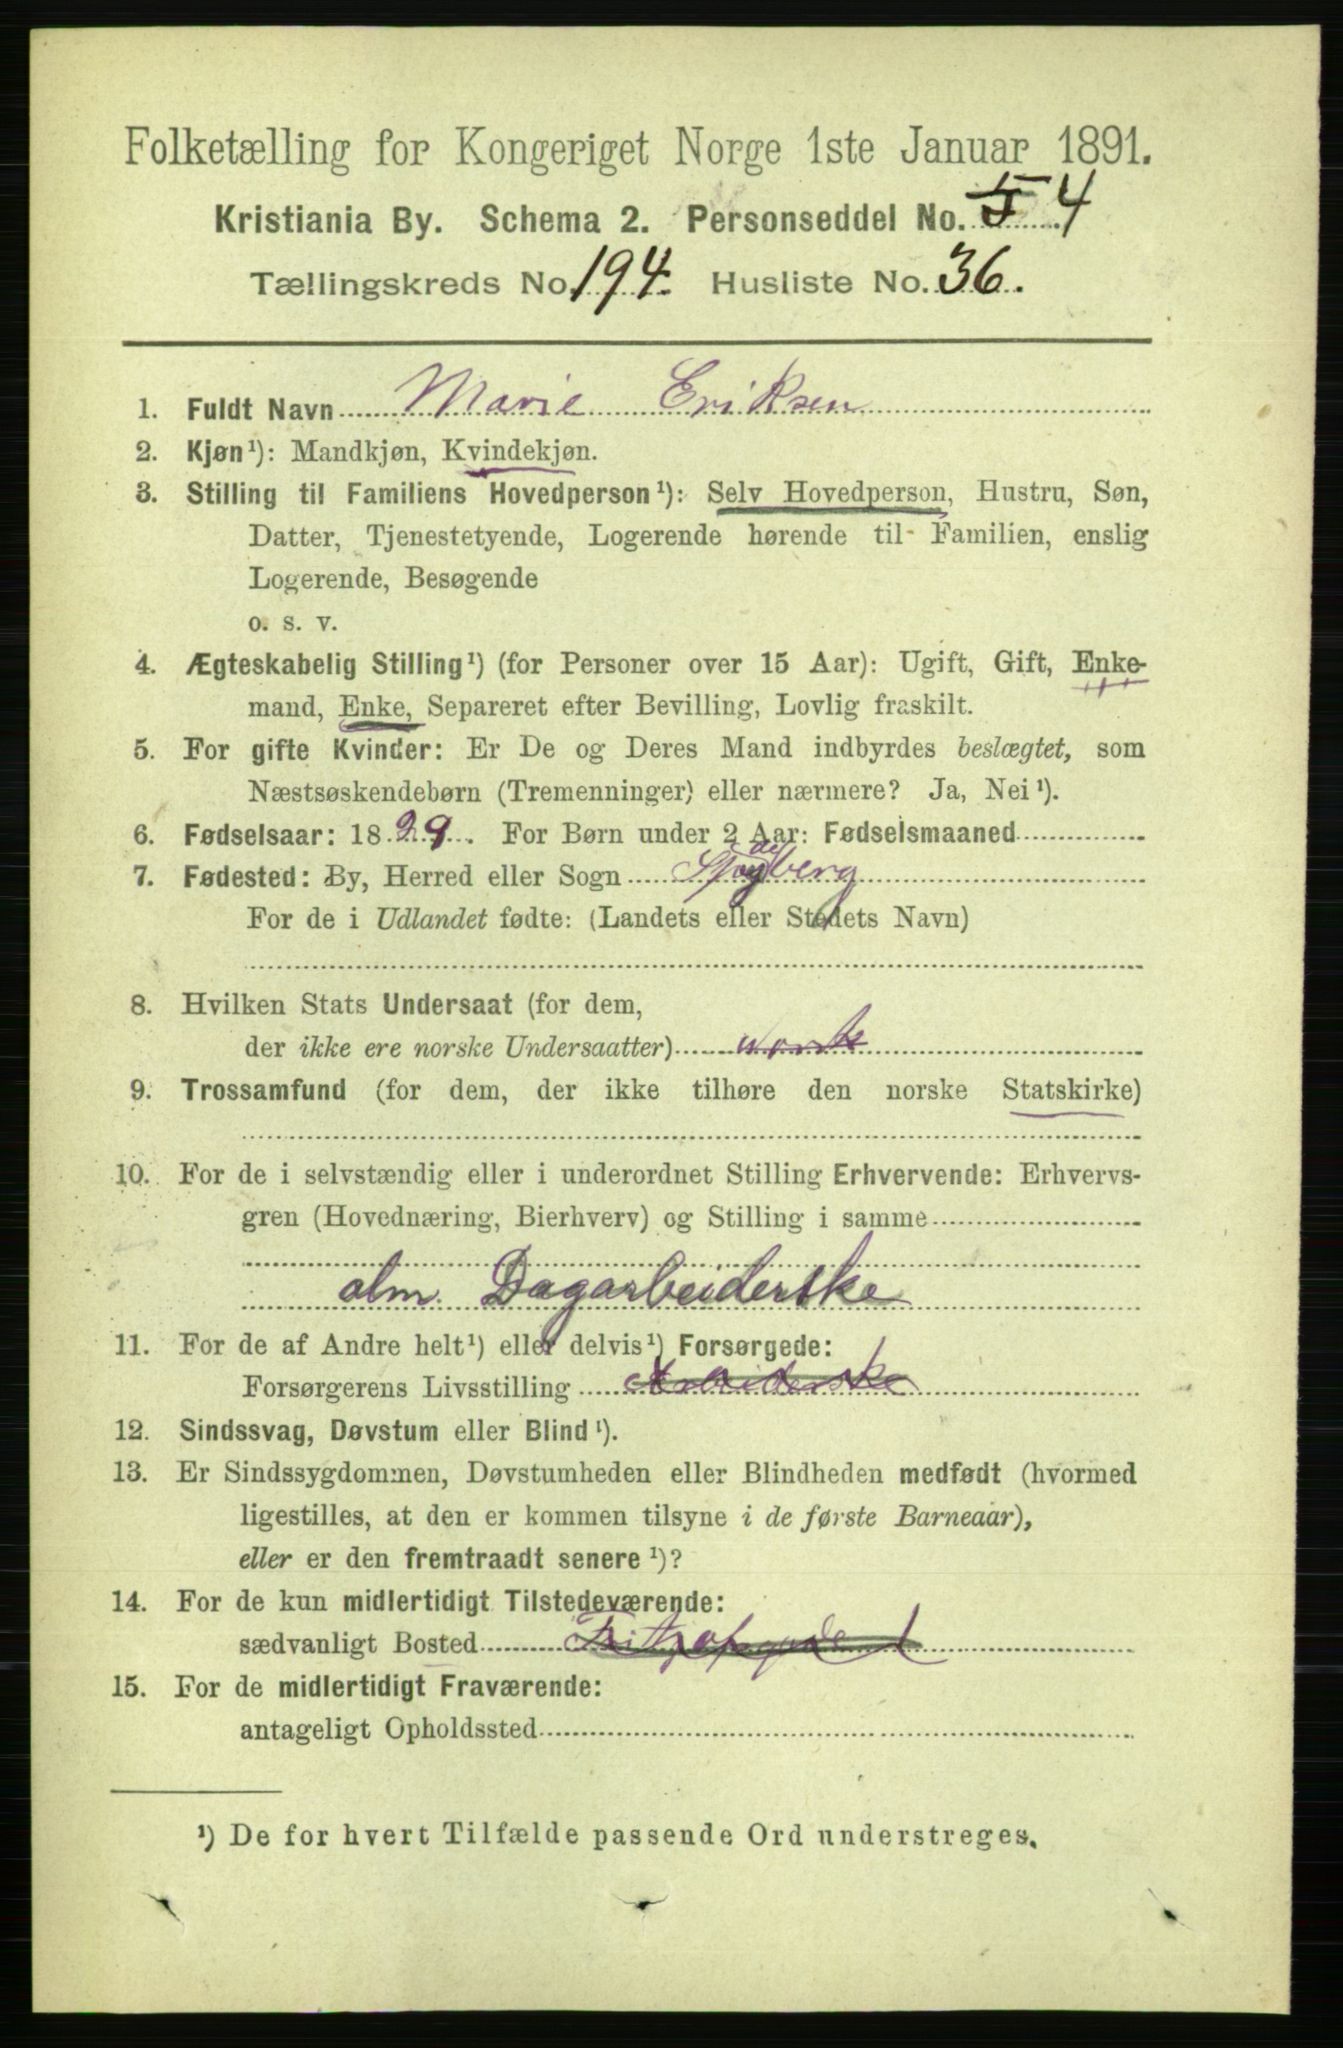 Folketælling for Kongeriget Norge 1ste Januar 1891.
Kristiania By. Schema 2. Personseddel No. 4
Tællingskreds No. 194. Husliste No. 36.
1. Fuldt Navn Marie Eriksen
2. Kjøn¹): Mandkjøn, Kvindekjøn.
3. Stilling til Familiens Hovedperson¹): Selv Hovedperson, Hustru, Søn,
Datter, Tjenestetyende, Logerende hørende til Familien, enslig
Logerende, Besøgende
o. s. v.
4. Ægteskabelig Stilling¹) (for Personer over 15 Aar): Ugift, Gift, Enke-
mand, Enke, Separeret efter Bevilling, Lovlig fraskilt.
5. For gifte Kvinder: Er De og Deres Mand indbyrdes beslægtet, som
Næstsøskendebørn (Tremenninger) eller nærmere? Ja, Nei¹).
6. Fødselsaar: 1829. For Børn under 2 Aar: Fødselsmaaned
7. Fødested: By, Herred eller Sogn
For de i Udlandet fødte: (Landets eller Stedets Navn)
8. Hvilken Stats Undersaat (for dem,
der ikke ere norske Undersaatter) norsk
9. Trossamfund (for dem, der ikke tilhøre den norske Statskirke)
10. For de i selvstændig eller i underordnet Stilling Erhvervende: Erhvervs-
gren (Hovednæring, Bierhverv) og Stilling i samme
alm. Dagarbeiderske
11. For de af Andre helt¹) eller delvis¹) Forsørgede:
Forsørgerens Livsstilling Arbeiderske
12. Sindssvag, Døvstum eller Blind¹).
13. Er Sindssygdommen, Døvstumheden eller Blindheden medfødt (hvormed
ligestilles, at den er kommen tilsyne i de første Barneaar),
eller er den fremtraadt senere¹)?
14. For de kun midlertidigt Tilstedeværende:
sædvanligt Bosted
15. For de midlertidigt Fraværende:
antageligt Opholdssted
¹) De for hvert Tilfælde passende Ord understreges.